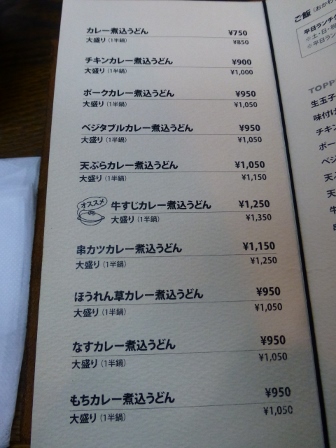 カレー煮込うどん ¥750
大盛り(1半鍋) ¥850
チキンカレー煮込うどん ¥900
大盛り(1半鍋) ¥1,000
ポークカレー煮込うどん ¥950
大盛り(1半鍋) ¥1,050
ベジタブルカレー煮込うどん ¥950
大盛り(1半鍋) ¥1,050
天ぷらカレー煮込うどん ¥1,050
大盛り(1半鍋) ¥1,150
オススメ 牛すじカレー煮込うどん ¥1,250
大盛り(1半鍋) ¥1,350
串カツカレー煮込うどん ¥1,150
大盛り(1半鍋) ¥1,250
ほうれん草カレー煮込うどん ¥950
大盛り(1半鍋) ¥1,050
なすカレー煮込うどん ¥950
大盛り(1半鍋) ¥1,050
もちカレー煮込うどん ¥950
大盛り(1半鍋) ¥1,050
ご飯(おかわ
平日ランチ
※土・日・
※平日ラン
TOPP
生玉子
味付け
チキン
ポー
ベジ
天ぷ
天
天